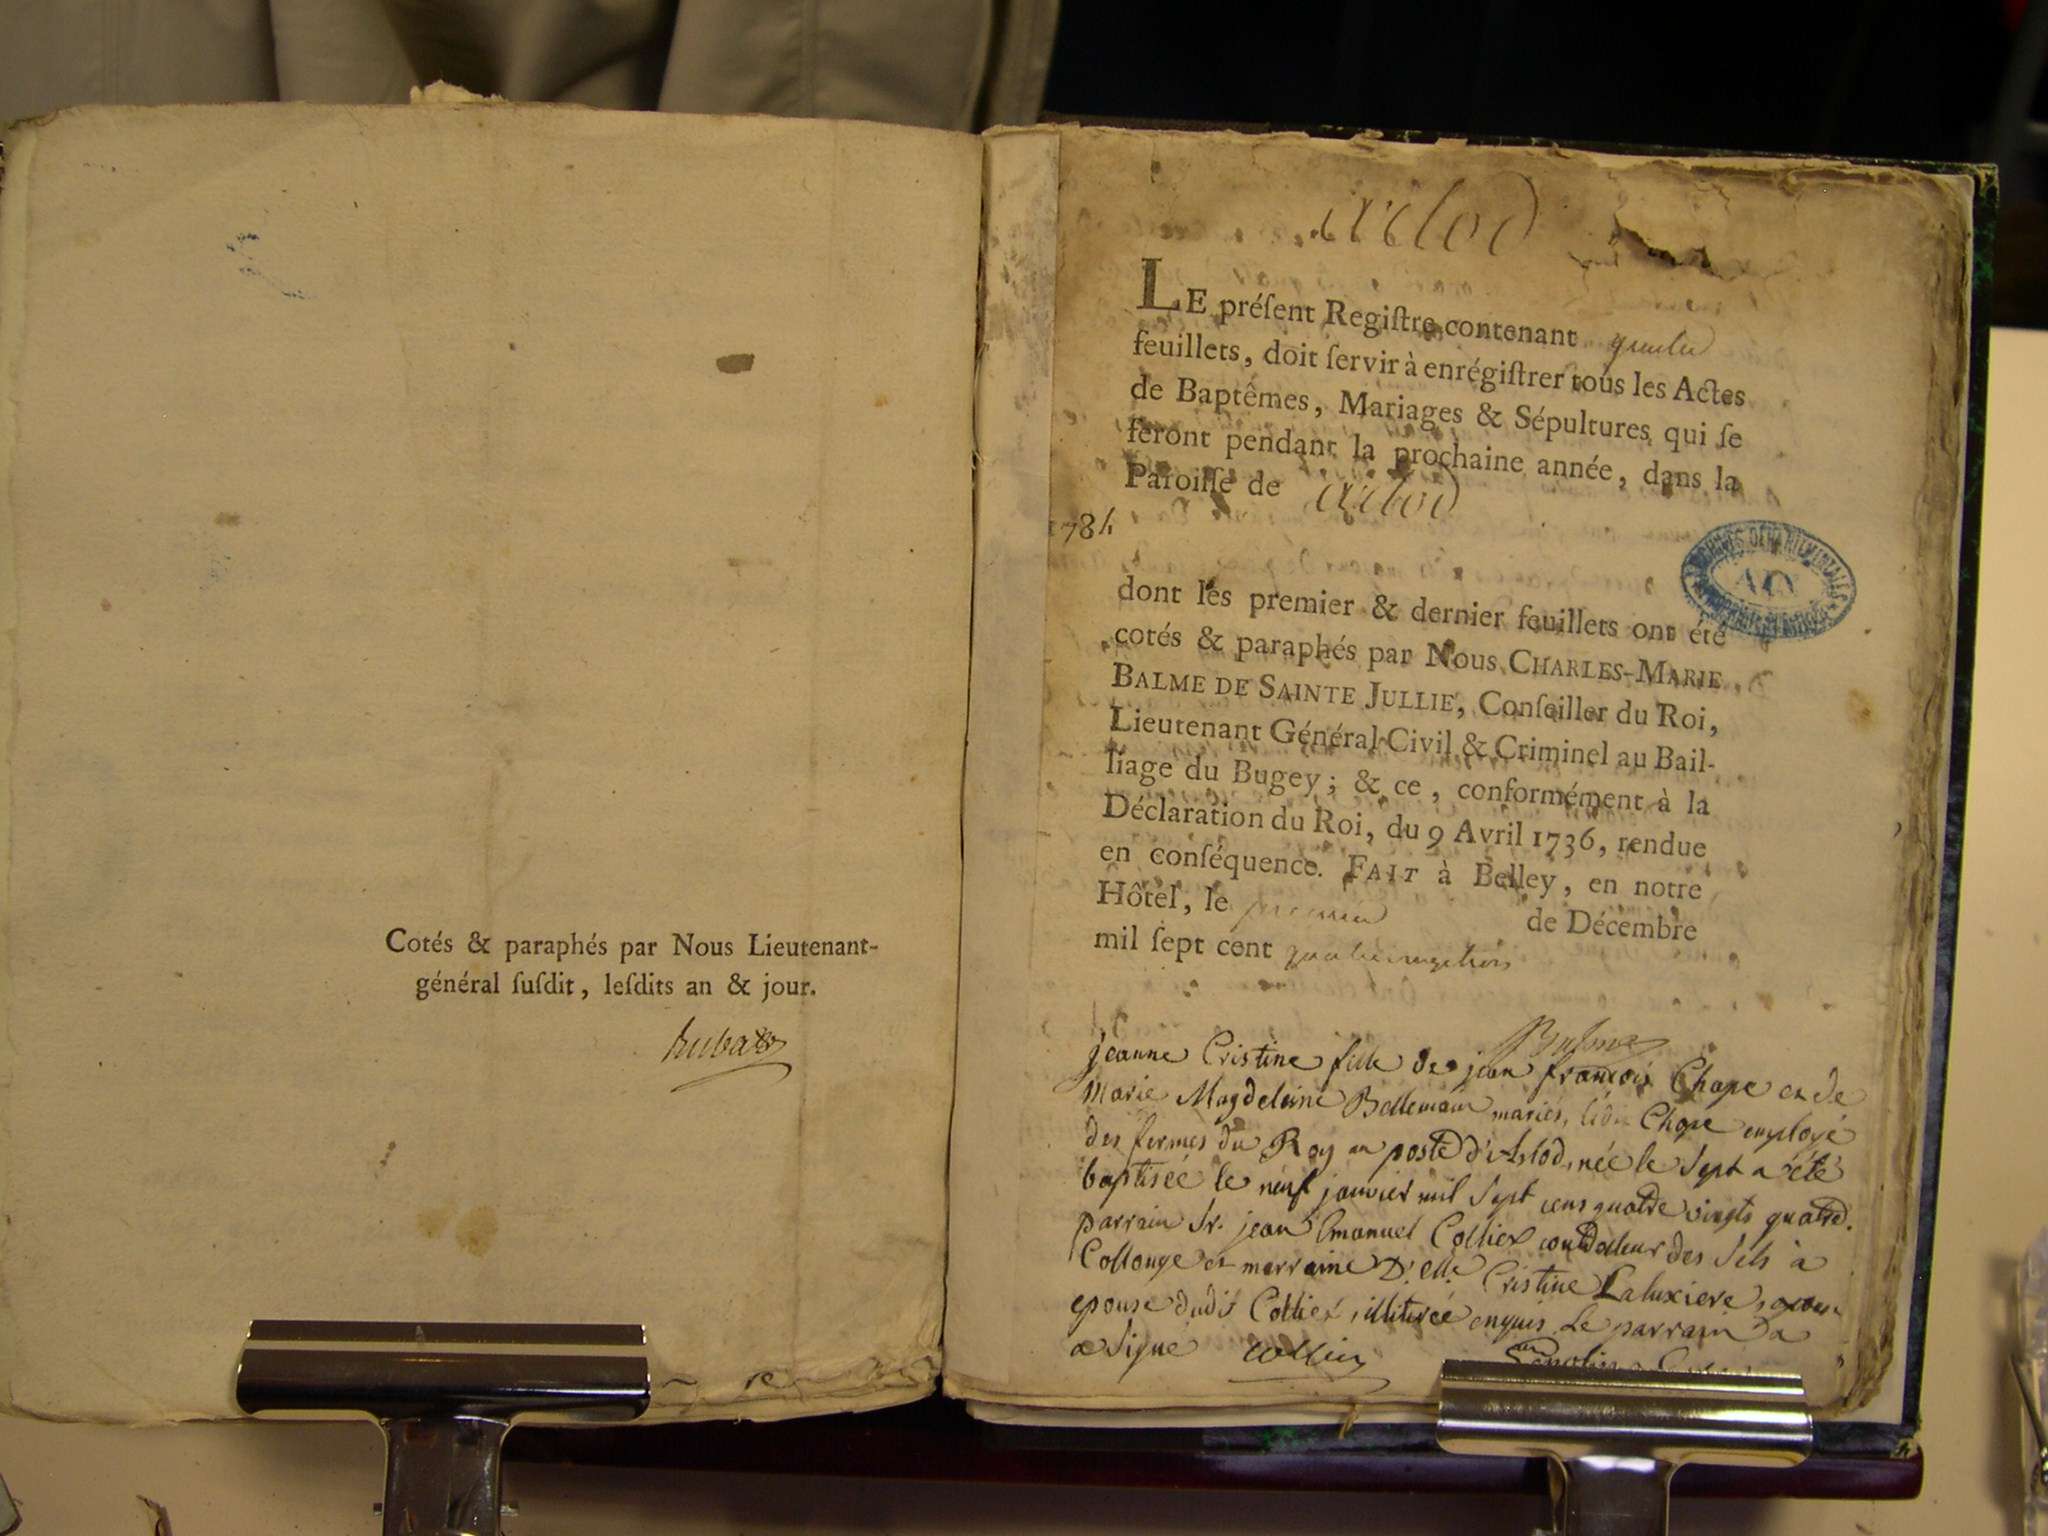 Cotés & paraphés par Nous Lieutenant-
général suſdit, leſdits an & jour.
Arlod
LE préſent Regiſtre contenant
feuillets, doit ſervir à enrégiſtrer tous les Actes
de Baptêmes, Mariages & Sépultures qui ſe
feront pendant la prochaine année, dans la
Paroiſſe de Arlod
1784
dont les premier & dernier feuillets ont été
cotés & paraphés par Nous CHARLES-MARIE
BALME DE SAINTE JULLIE, Conſeiller du Roi,
Lieutenant Général Civil & Criminel au Bail-
liage du Bugey; & ce, conformément à la
Déclaration du Roi, du 9 Avril 1736, rendue
en conſéquence. FAIT à Belley, en notre
Hôtel, le premier de Décembre
mil ſept cent quatrevingttrois
Balme
jeanne Cristine fille de jean françois Chape et de
Marie Magdeleine Bellemain mariés, ledit Chape employé
des fermes du Roy au poste d'Arlod, née le sept a été
baptisée le neuf janvier mil sept cens quatre vingts quatre.
parrain Sr. jean Emanuel Collier controlleur des sels à
Collonge et marraine D.elle Cristine Laluxiere,
epouse dudit Collier, illitirée enquis. Le parrain a
a signe
ARCHIVES DÉPARTEMENTALES